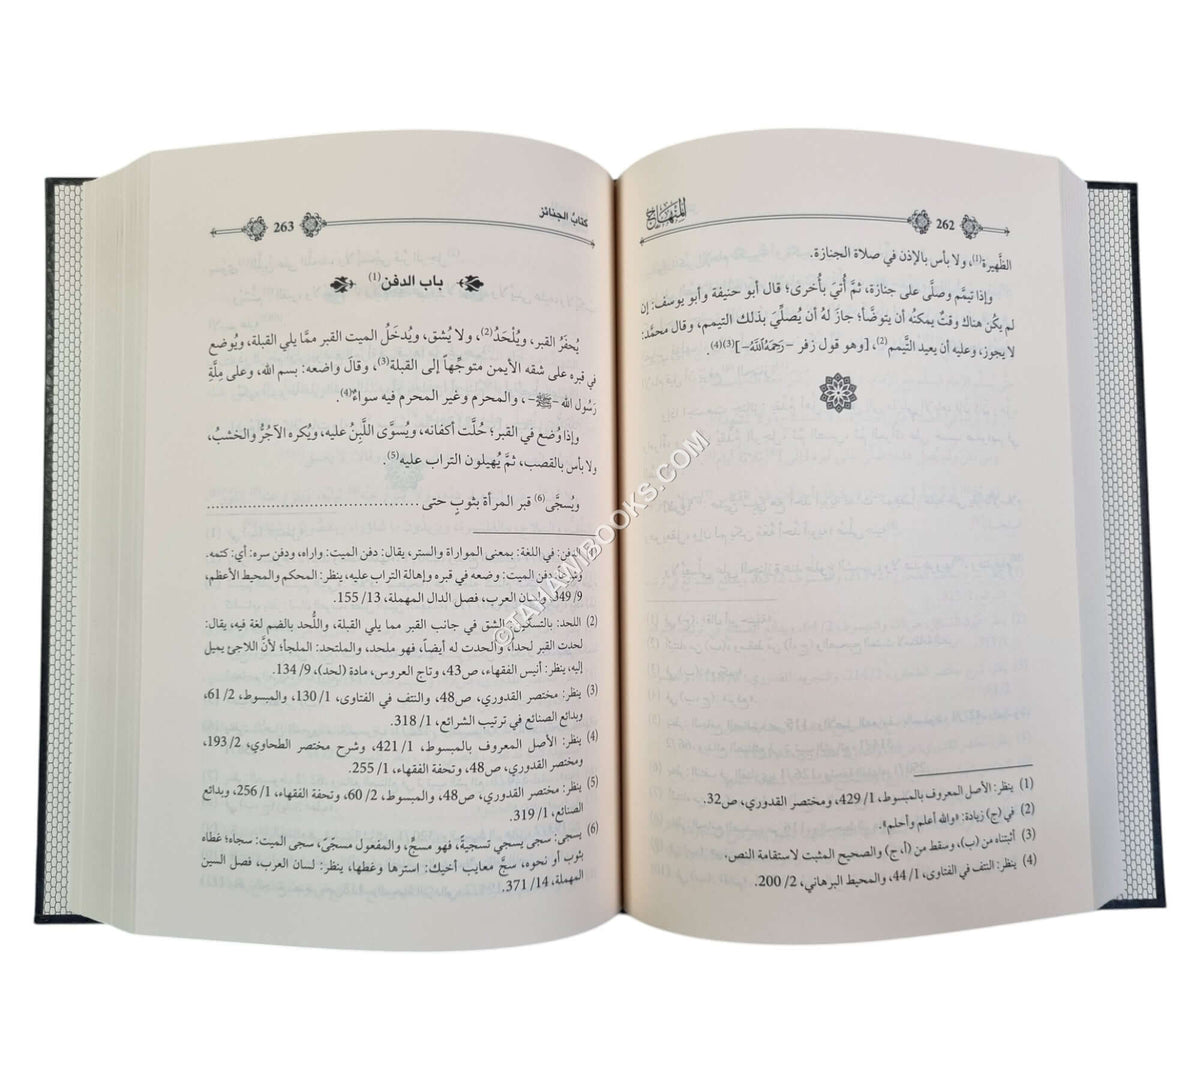 المنهاج
262
الظَّهيرة(1)، ولا بأس بالإذن في صلاة الجنازة.
وإذا تيمَّم وصلَّى على جنازة، ثمَّ أُتيَ بأُخرى؛ قال أبو حنيفة وأبو يوسف: إن
لم يكُن هناك وقتٌ يمكنُه أن يتوضَّأ؛ جازَ لهُ أن يُصلِّيَ بذلك التيمم، وقال محمَّد:
لا يجوز، وعليه أن يعيد التَّيمم(2)، [وهو قول زفر -رَحِمَهُ اللَّهُ-](3)(4).
(1) ينظر: الأصل المعروف بالمبسوط، 1/ 429، ومختصر القدوري، ص32.
(2) في (ج) زيادة: «والله أعلم وأحلم».
(3) أثبتناه من (ب)، وسقط من (أ، ج) والصحيح المثبت لاستقامة النص.
(4) ينظر: النتف في الفتاوى، 1/ 44، والمحيط البرهاني، 2/ 200.
كتابُ الجنائز
263
باب الدفن(1)
يُحفَرُ القبر، ويُلْحَدُ(2)، ولا يُشق، ويُدخَلُ الميت القبر ممَّا يلي القبلة، ويُوضع
في قبره على شقه الأيمن متوجِّهاً إلى القبلة(3)، وقالَ واضعه: بسم الله، وعلى مِلَّةِ
رَسُول الله -ﷺ-، والمحرم وغير المحرم فيه سواءٌ(4).
وإذا وُضع في القبر؛ حُلَّت أكفانه، ويُسوَّى اللَّبِنُ عليه، ويُكره الآجُرُّ والخشبُ،
ولا بأس بالقصب، ثمَّ يُهيلون التراب عليه(5).
ويُسجَّى(6) قبر المرأة بثوبٍ حتى
الدفن: في اللغة: بمعنى المواراة والستر، يقال: دفن الميت: واراه، ودفن سره: أي: كتمه.
دفن الميت: وضعه في قبره وإهالة التراب عليه، ينظر: المحكم والمحيط الأعظم،
9/ 349، ولسان العرب، فصل الدال المهملة، 13/ 155.
(2) اللحد: بالتسكين: الشق في جانب القبر مما يلي القبلة، واللُّحد بالضم لغة فيه، يقال:
لحدت القبر لحداً، وألحدت له أيضاً، فهو ملحد، والملتحد: الملجأ؛ لأنَّ اللاجئ يميل
إليه، ينظر: أنيس الفقهاء، ص43، وتاج العروس، مادة (لحد)، 9/ 134.
(3) ينظر: مختصر القدوري، ص48، والنتف في الفتاوى، 1/ 130، والمبسوط، 2/ 61،
وبدائع الصنائع في ترتيب الشرائع، 1/ 318.
(4) ينظر: الأصل المعروف بالمبسوط، 1/ 421، وشرح مختصر الطحاوي، 2/ 193،
ومختصر القدوري، ص48، وتحفة الفقهاء، 1/ 255.
(5) ينظر: مختصر القدوري، ص48، والمبسوط، 2/ 60، وتحفة الفقهاء، 1/ 256، وبدائع
الصنائع، 1/ 319.
(6) يسجى: سجى يسجي تسجية، فهو مسجٍّ، والمفعول مسجّىً، سجى الميت: سجاه؛ غطاه
بثوب أو نحوه، سجَّ معايب أخيك: استرها وغطها، ينظر: لسان العرب، فصل السين
المهملة، 14/ 371.
©TAHAWIBOOKS.COM